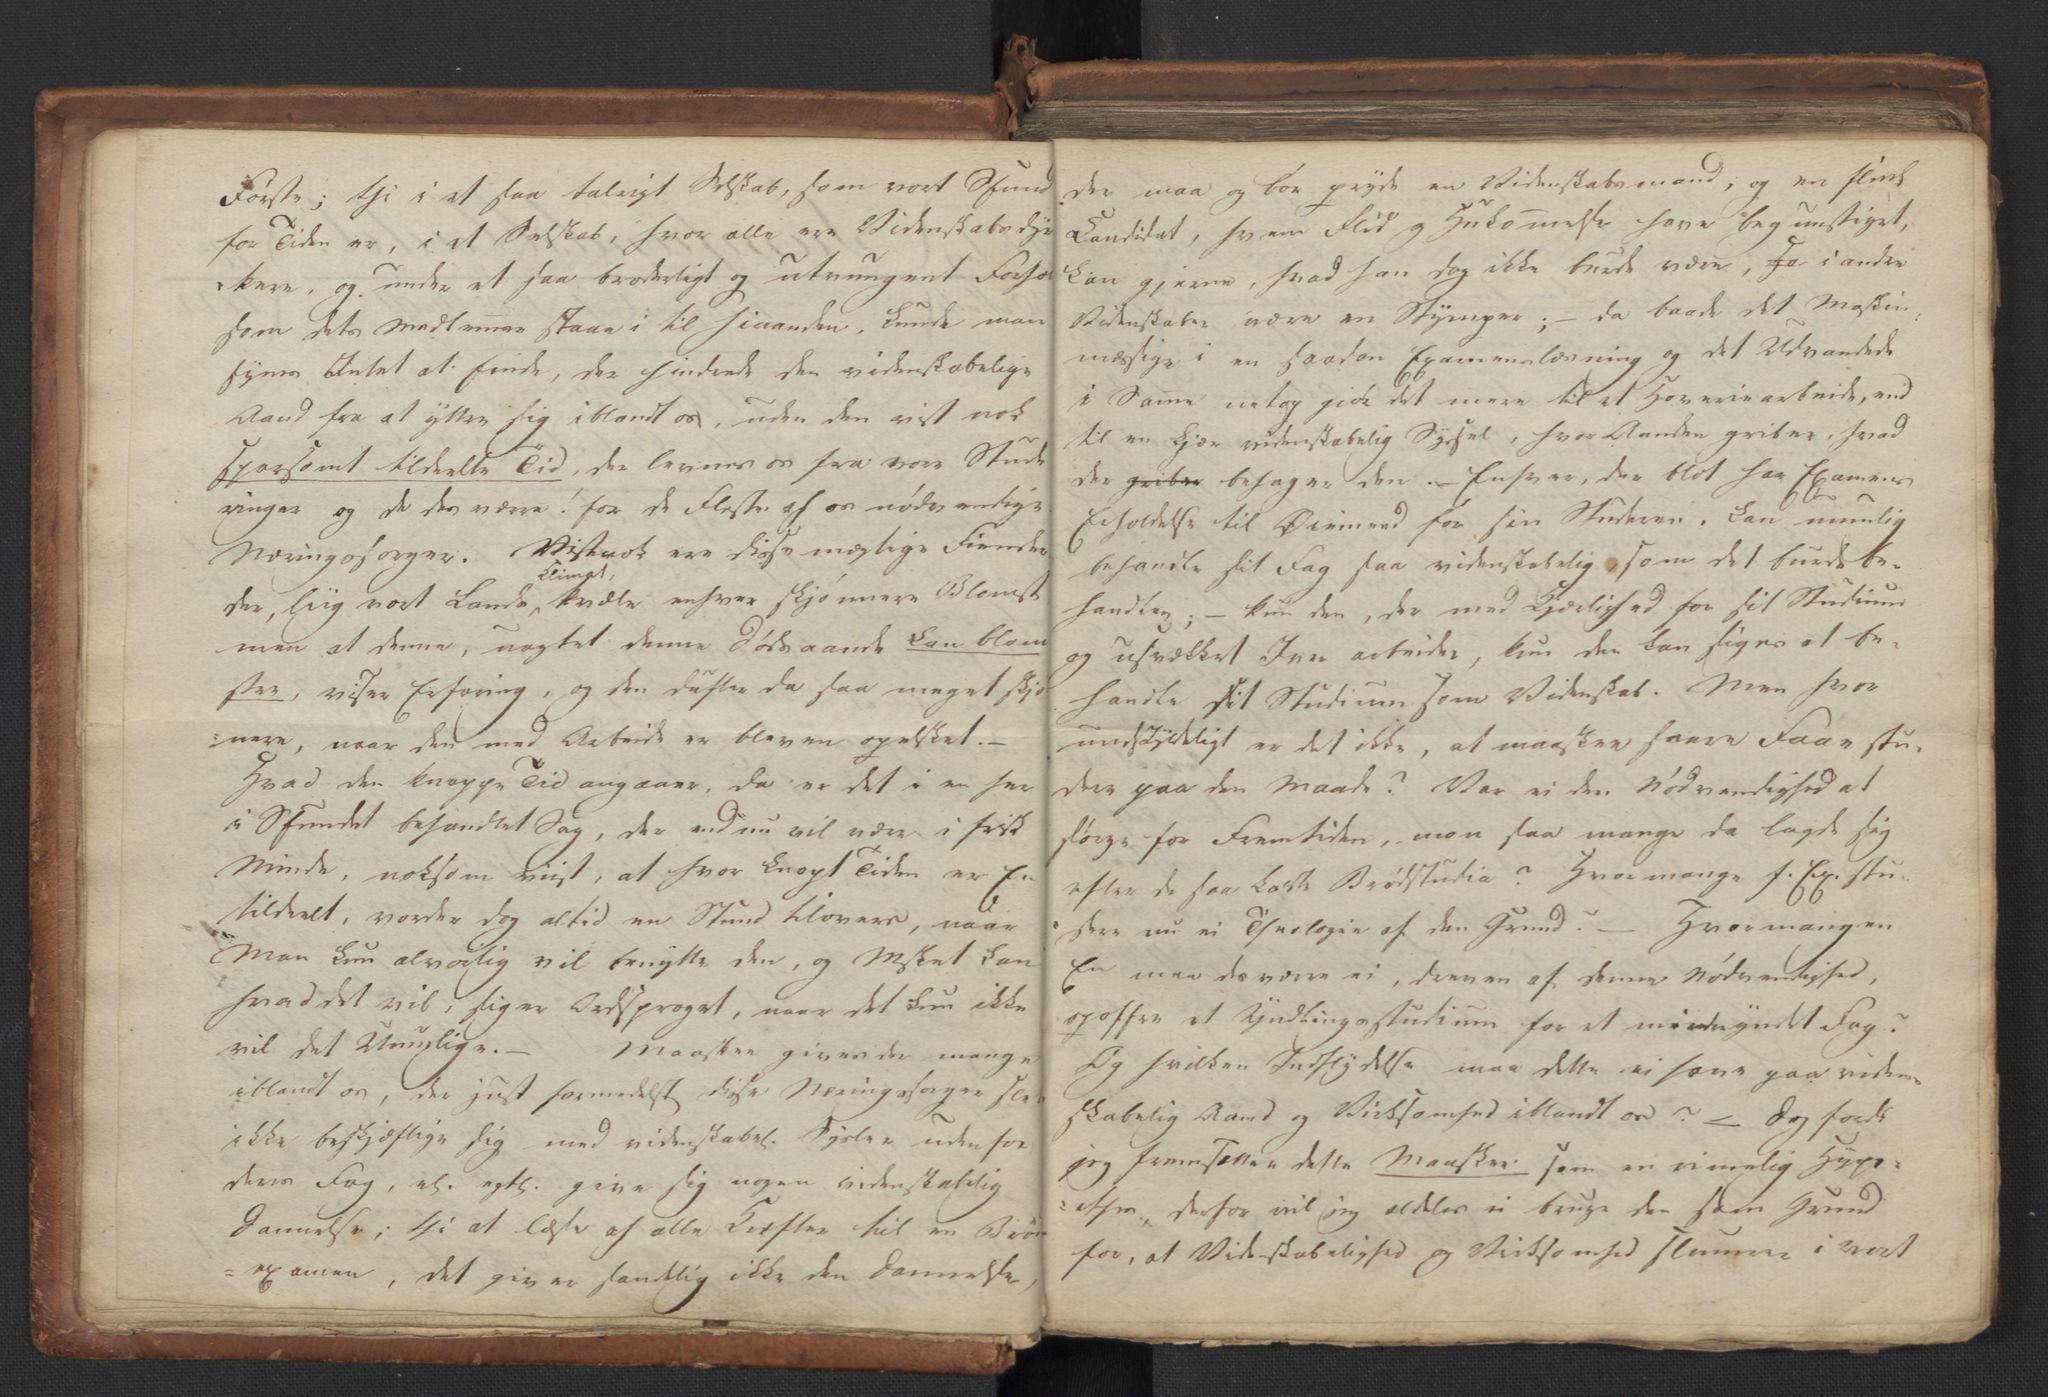 Første; thi i et saa talrigt Selskab, som vort Sfund
for Tiden er, i et Selskab, hvor alle ere Videnskabsdyr
kere, og under et saa broderligt og utvungent Forho
som dets Medlemmer staae i til hinanden, kunde man
synes Intet at finde, der hindrede den videnskabelige
Aand fra at yttre sig iblandt os, uden den vist nok
sparsomt tildeelte Tid, der levnes os fra vore Stude
ringer og de desværre! for de Fleste af os nødvendige
Næringssorger. Vistnok ere disse mægtige Fiender
Climat,
der, liig vort Lands, kvæle enhver skjønnere Blomst
men at denne, uagtet denne Dødsaande kan blom
stre, viser Erfaring, og den dufter da saa meget skjø
=nere, naar den med Arbeide er bleven opelsket.—
Hvad den knappe Tid angaaer, da er det i en her
i Sfundet behandlet Sag, der endnu vil være i frisk
Minde, noksom viist, at hvor knapt Tiden er En
tildeelt, vorder dog altid en Stund tilovers, naar
Man kun alvorlig vil benytte den, og Msket kan
hvad det vil, siger Ordsproget, naar det kun ikke
vil det Umulige.— Maaskee gives der mange
iblandt os, der just formedelst disse Næringssorger slet
ikke beskjæftige sig med videnskabel. Sysler udenfor
deres Fag, el. egtl. give sig nogen videnskablig
Dannelse; thi at læse af alle Kræfter til en Brød
=examen, det giver sandelig ikke den Dannelse,
der maa og bør pryde en Videnskabsmand; og en flink
Candidat, hvem Flid og Hukommelse have begunstiget,
kan gjerne, hvad han dog ikke burde være, Ja i andre
Videnskaber være en Stymper; — da baade det Maskin=
mæssige i en saadan Examenslæsning og det Udvandede
i Samme netop gjør det mere til et Hoveriearbeide, end
til en kjær videnskabelig Syssel, hvor Aanden griber, hvad
der griber behager den.— Enhver, der blot har Examens
Erholdelse til Øiemeed for sin Studeren, kan umulig
behandle sit Fag saa videnskabelig, som det burde be=
handles; — kun den, der med Kjærlighed for sit Studium
og usvækket Iver arbeider, kun den kan siges at be=
handle sit Studium som Videnskab. Men hvor
undskyldeligt er det ikke, at maaskee saare Faae stu=
dere paa den Maade? Var ei den Nødvendighed at
sørge for Fremtiden, mon saa mange da lagde sig
efter de saa kaldte Brødstudia? Hvormange f. Ex. stu=
dere nu ei Theologie af den Grund? — Hvormangen
En maa desværre ei, dreven af denne Nødvendighed,
opoffre et Yndlingsstudium for et mindreyndet Fag?
Og hvilken Indflydelse maa dette ei have paa viden=
skabelig Aand og Virksomhed iblandt os? — Dog fordi
jeg fremsætter dette Maaskee som en rimelig Hypo=
=these, derfor vil jeg aldeles ei bruge den som Grund
for, at Videnskabelighed og Virksomhed slumrer i vort